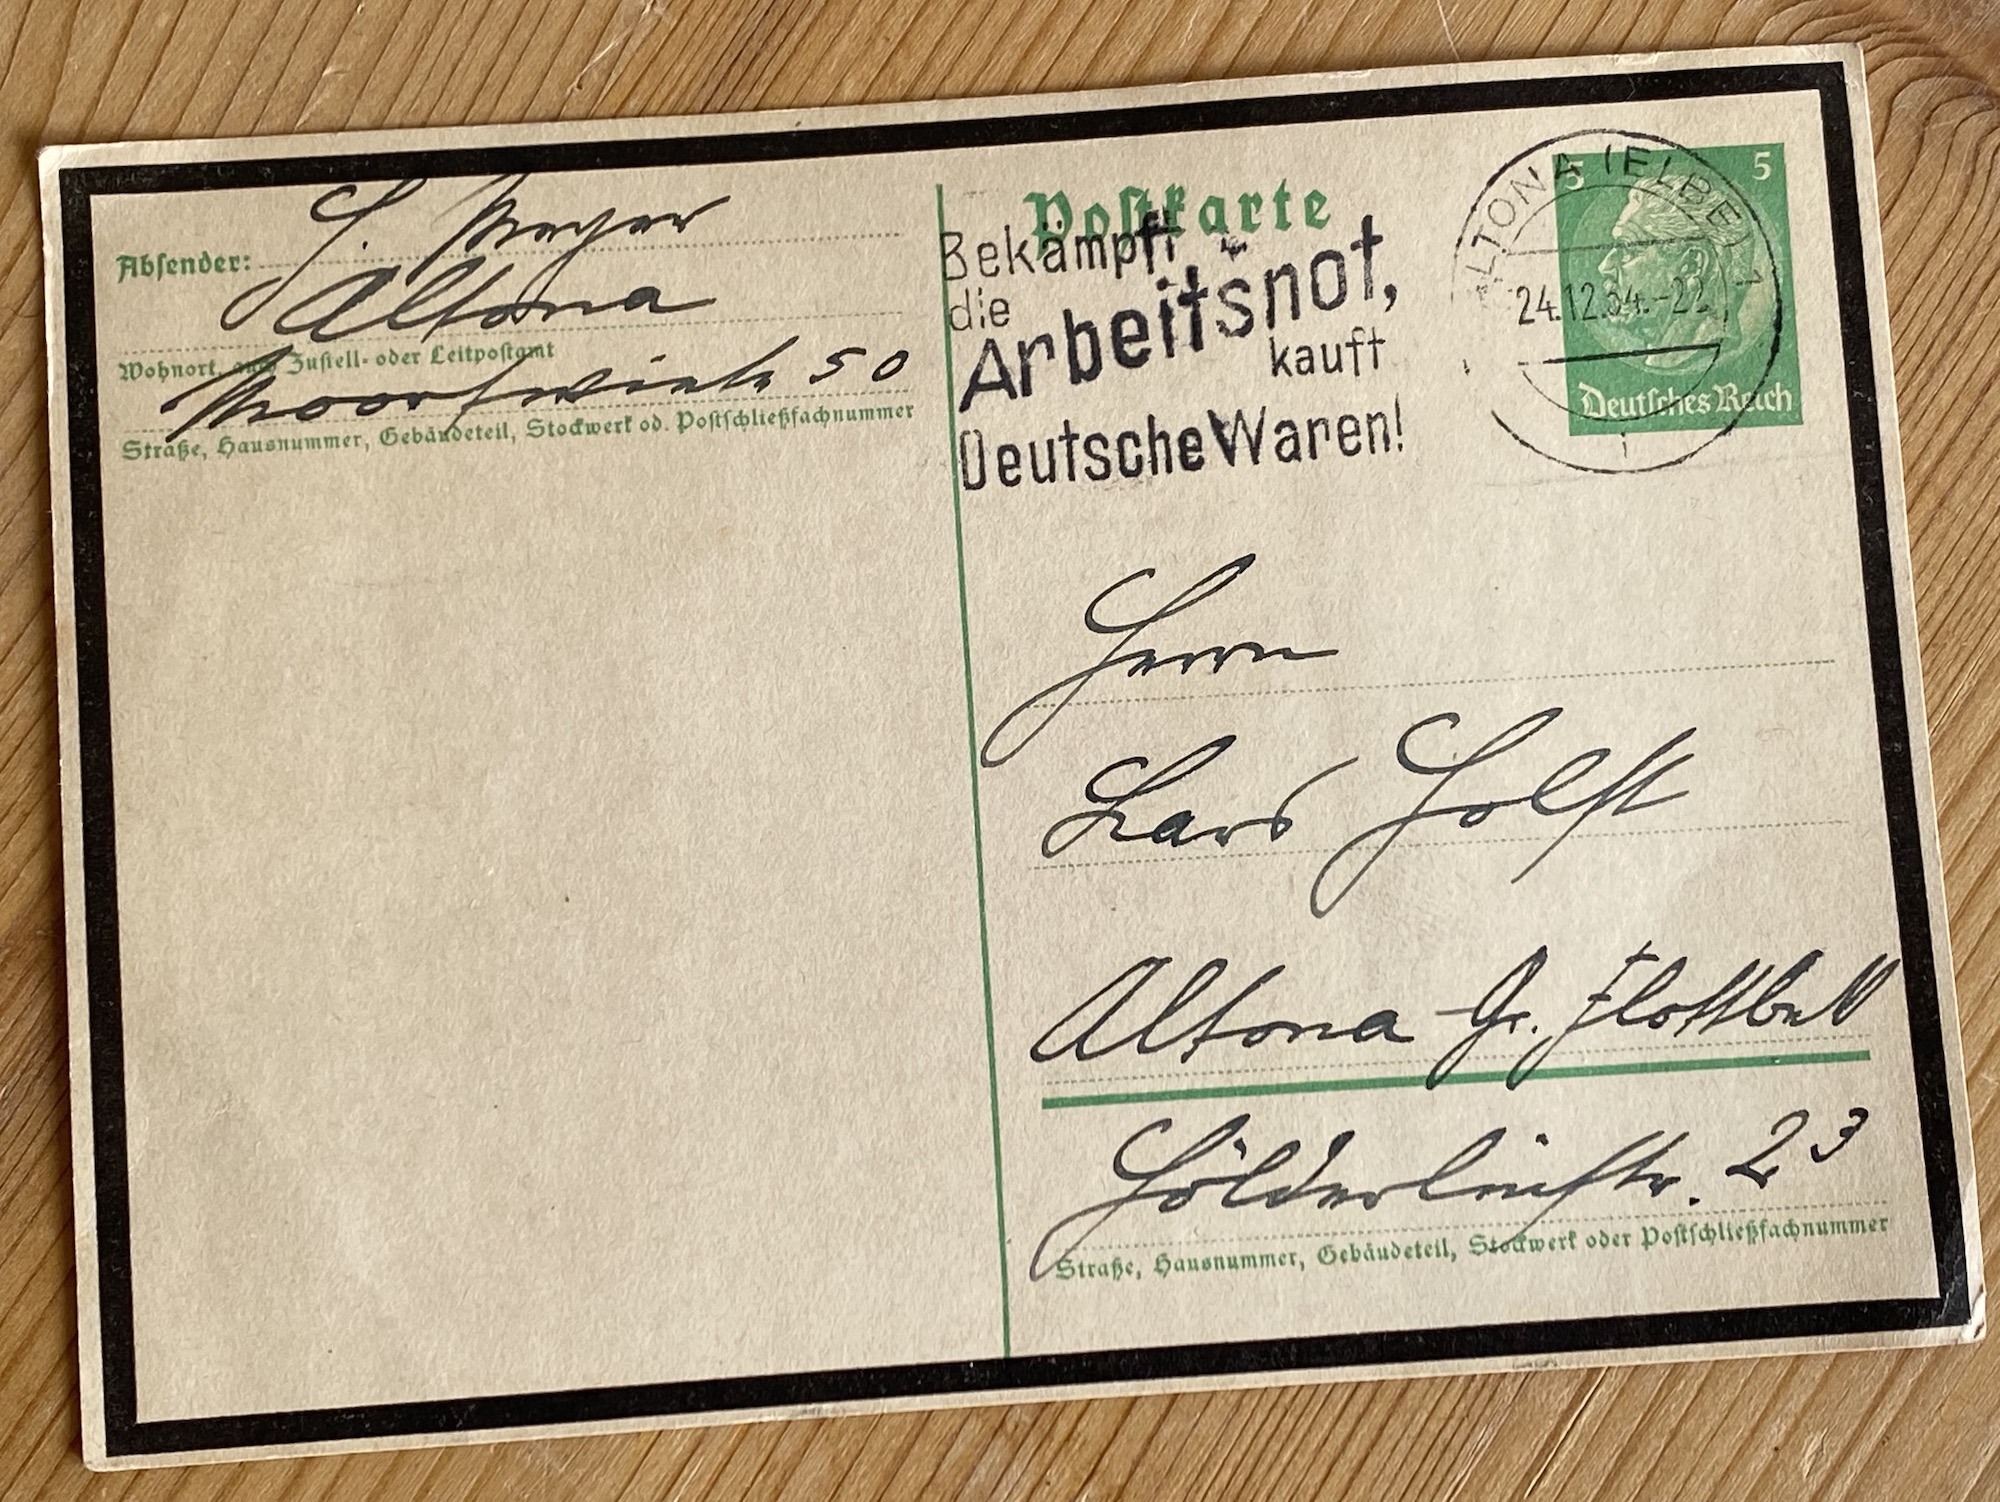 Absender: H. Meyer
Altona
Wohnort, auch Zustell- oder Leitpostamt
50
Straße, Hausnummer, Gebäudeteil, Stockwerk od. Postschließfachnummer
Postkarte
Bekämpft
die
Arbeitsnot,
kauft
Deutsche Waren!
ALTONA (ELBE) 1
24.12.34.-22
5 5
Deutsches Reich
Herrn
Lars Holst
Altona Gr. Flottbek
Hölderlinstr. 23
Straße, Hausnummer, Gebäudeteil, Stockwerk oder Postschließfachnummer